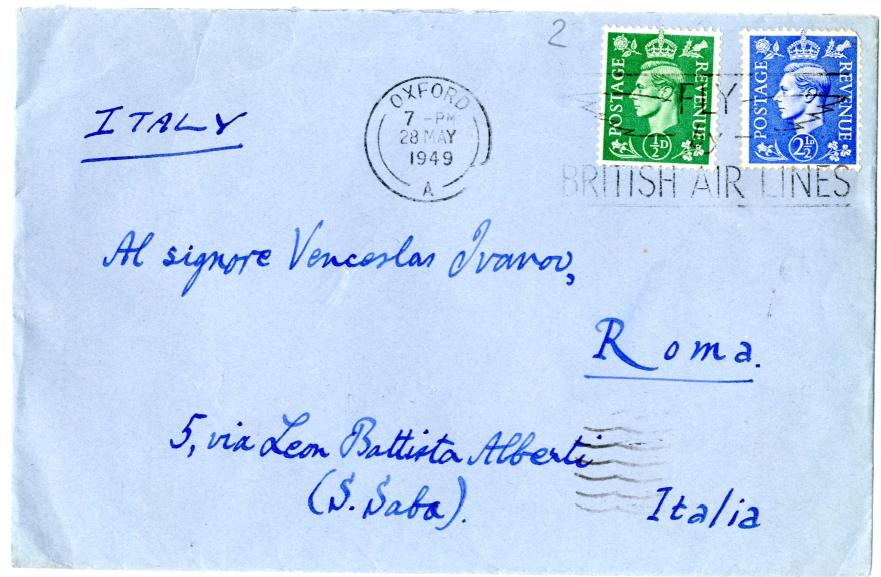 2
POSTAGE REVENUE
½D
POSTAGE REVENUE
2½D
OXFORD
7 - PM
28 MAY
1949
A
FLY
BY
BRITISH AIR LINES
ITALY
Al signore Venceslas Ivanov,
Roma.
5, via Leon Battista Alberti
(S. Saba).
Italia